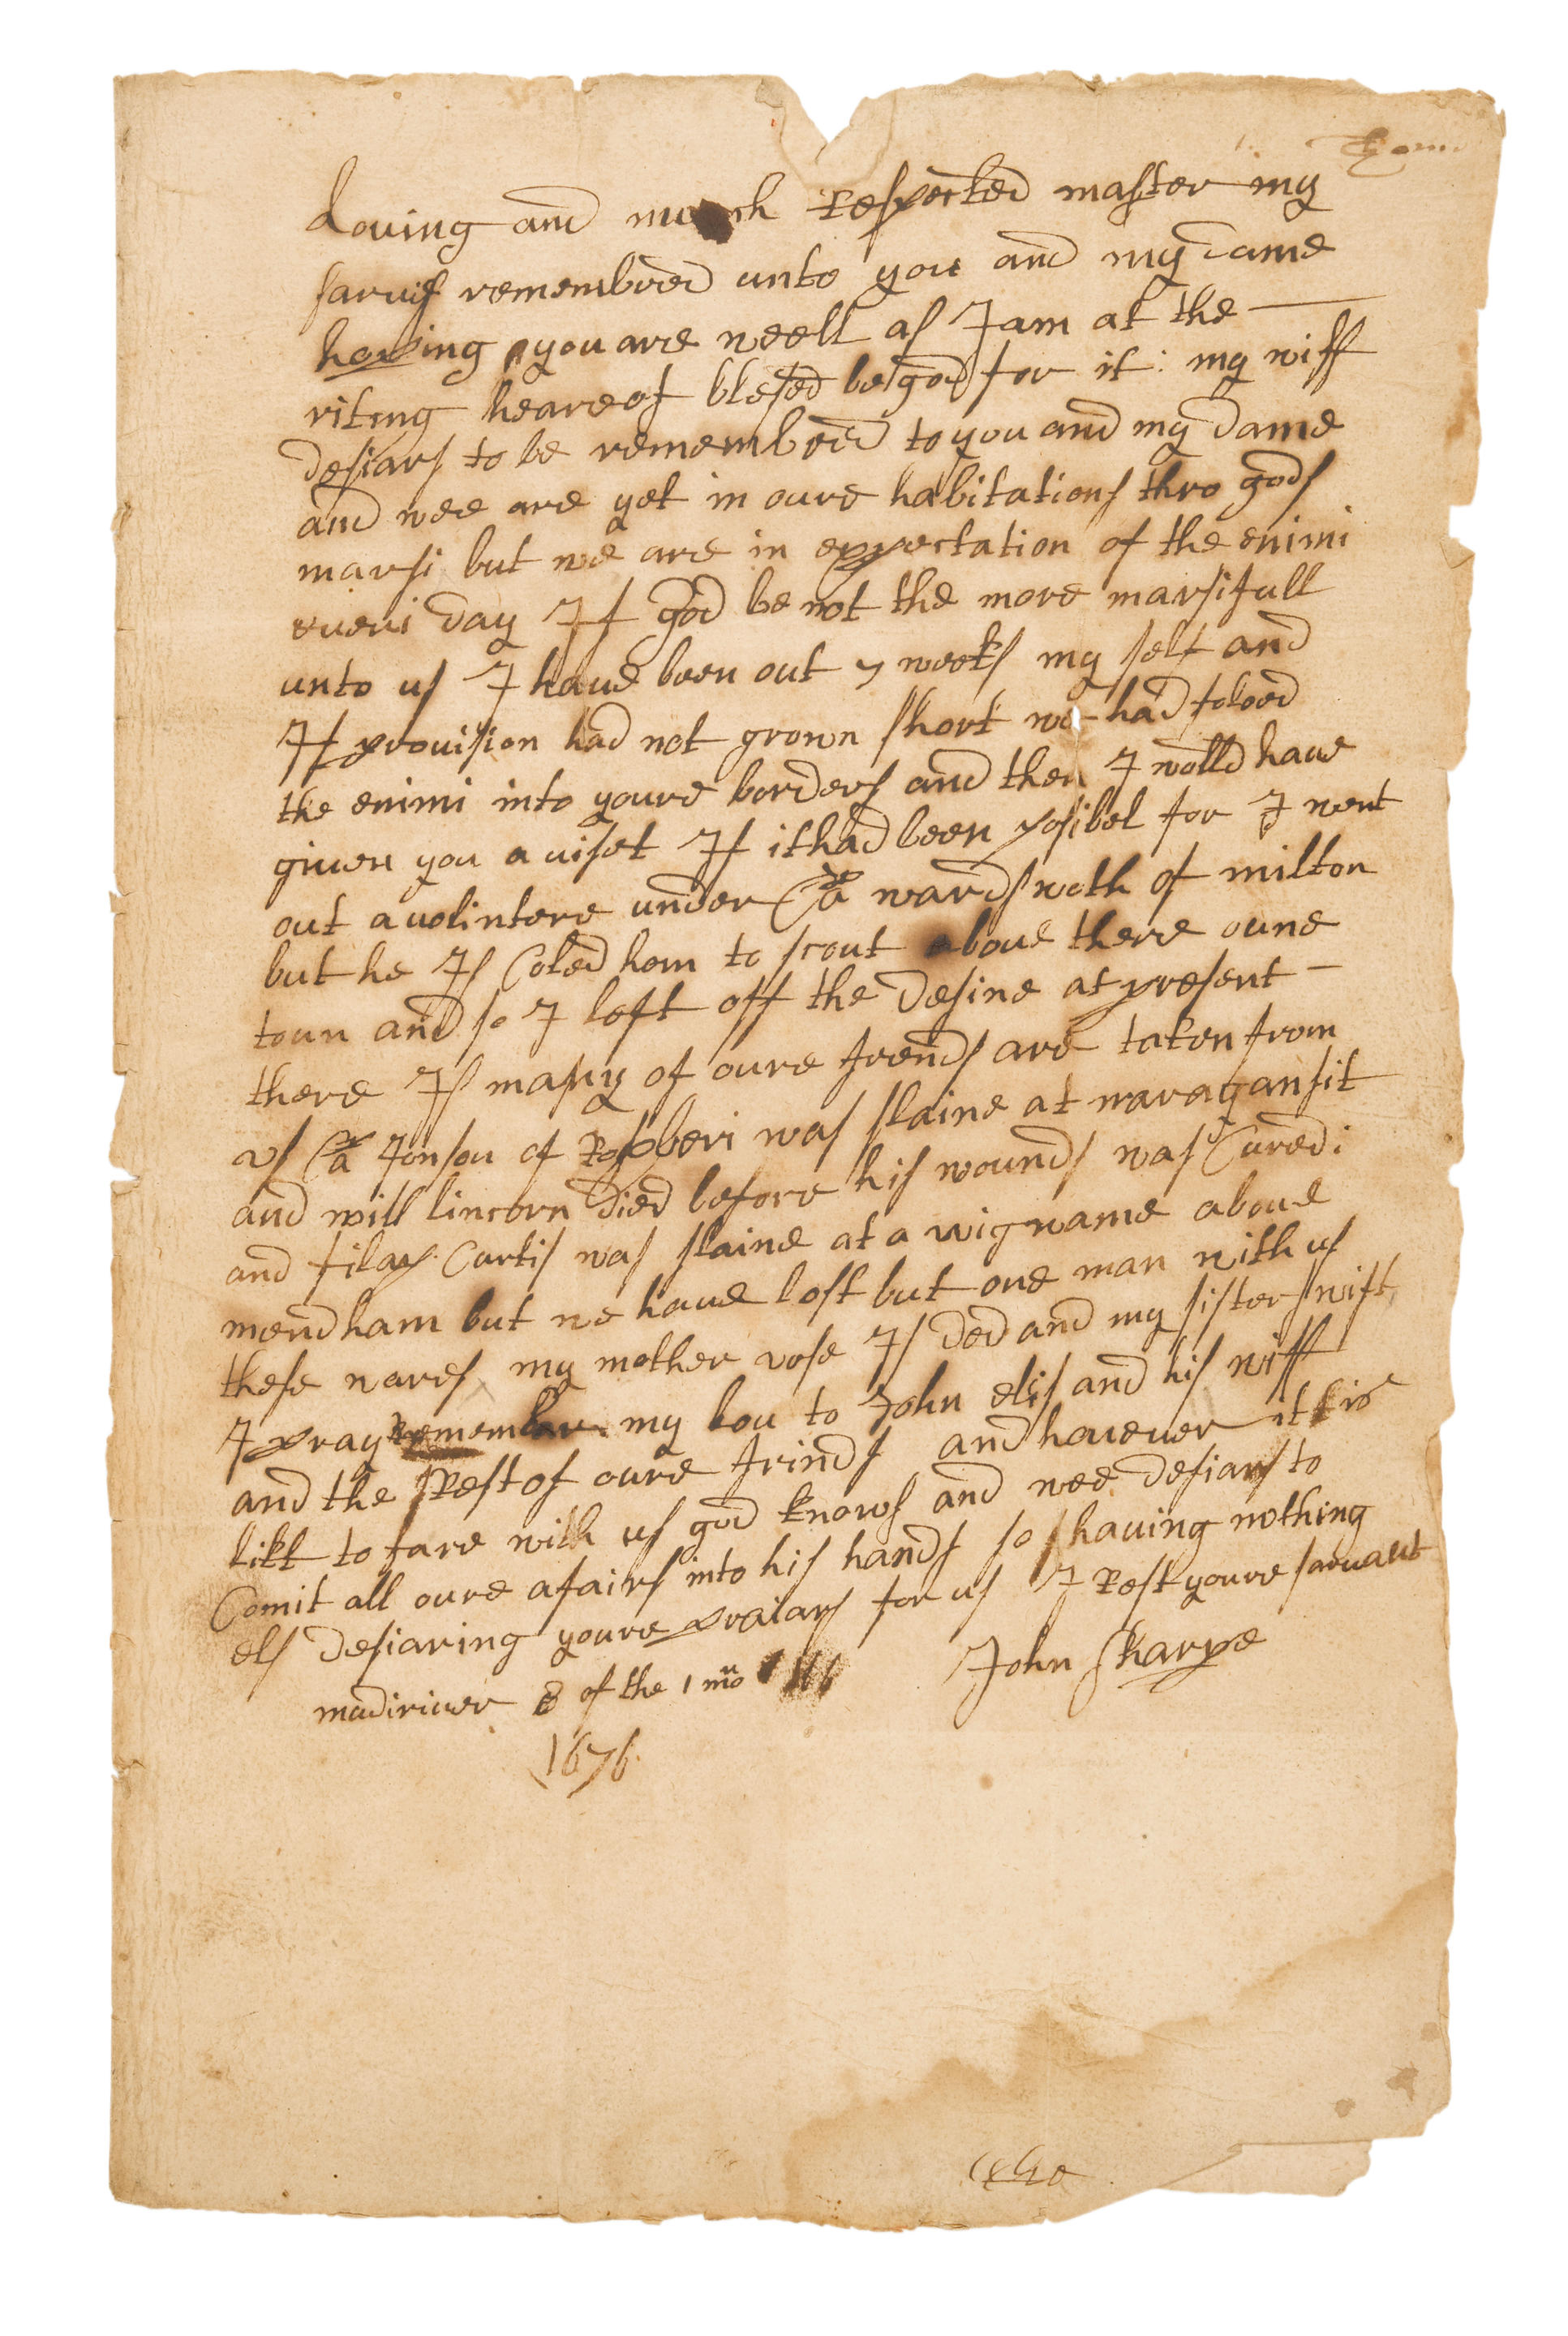 Loving and much Respected master my
sarvis remembred unto you and my dame
hoping you are weell as I am at the
riting heareof blesed be god for it : my wiff
desiars to be remembred to you and my dame
and wee are yet in oure habitations thro gods
marsi but we are in expectation of the enimi
everi day If god be not the more marsifull
unto us I have been out 7 weeks my self and
If provision had not grown short we had foloed
the enimi into youre borders and then I wolld have
given you a viset If it had been posibel for I went
out a volintere under Cap wardsweth of milton
but he Is Coled hom to scout aboue there oune
toun and so I left off the desine at present
there Is many of oure frends are taken from
us Cap Jonson of Roxberi was slaine at naragansit
and will lincorn died before his wounds was Cured :
and filap Curtis was slaine at a wigwame aboue
mendham but we have lost but one man with us
these wares my mother vose Is ded and my sister swift
I pray remember my lov to John elis and his wiff
and the Rest of oure frinds and however it is
likt to fare with us god knows and wee desiars to
Comit all oure afairs into his hands so having nothing
els desiaring youre praiars for us I Rest youre sarvant
John Sharpe
mudiriver 8 of the 1 mo
1676